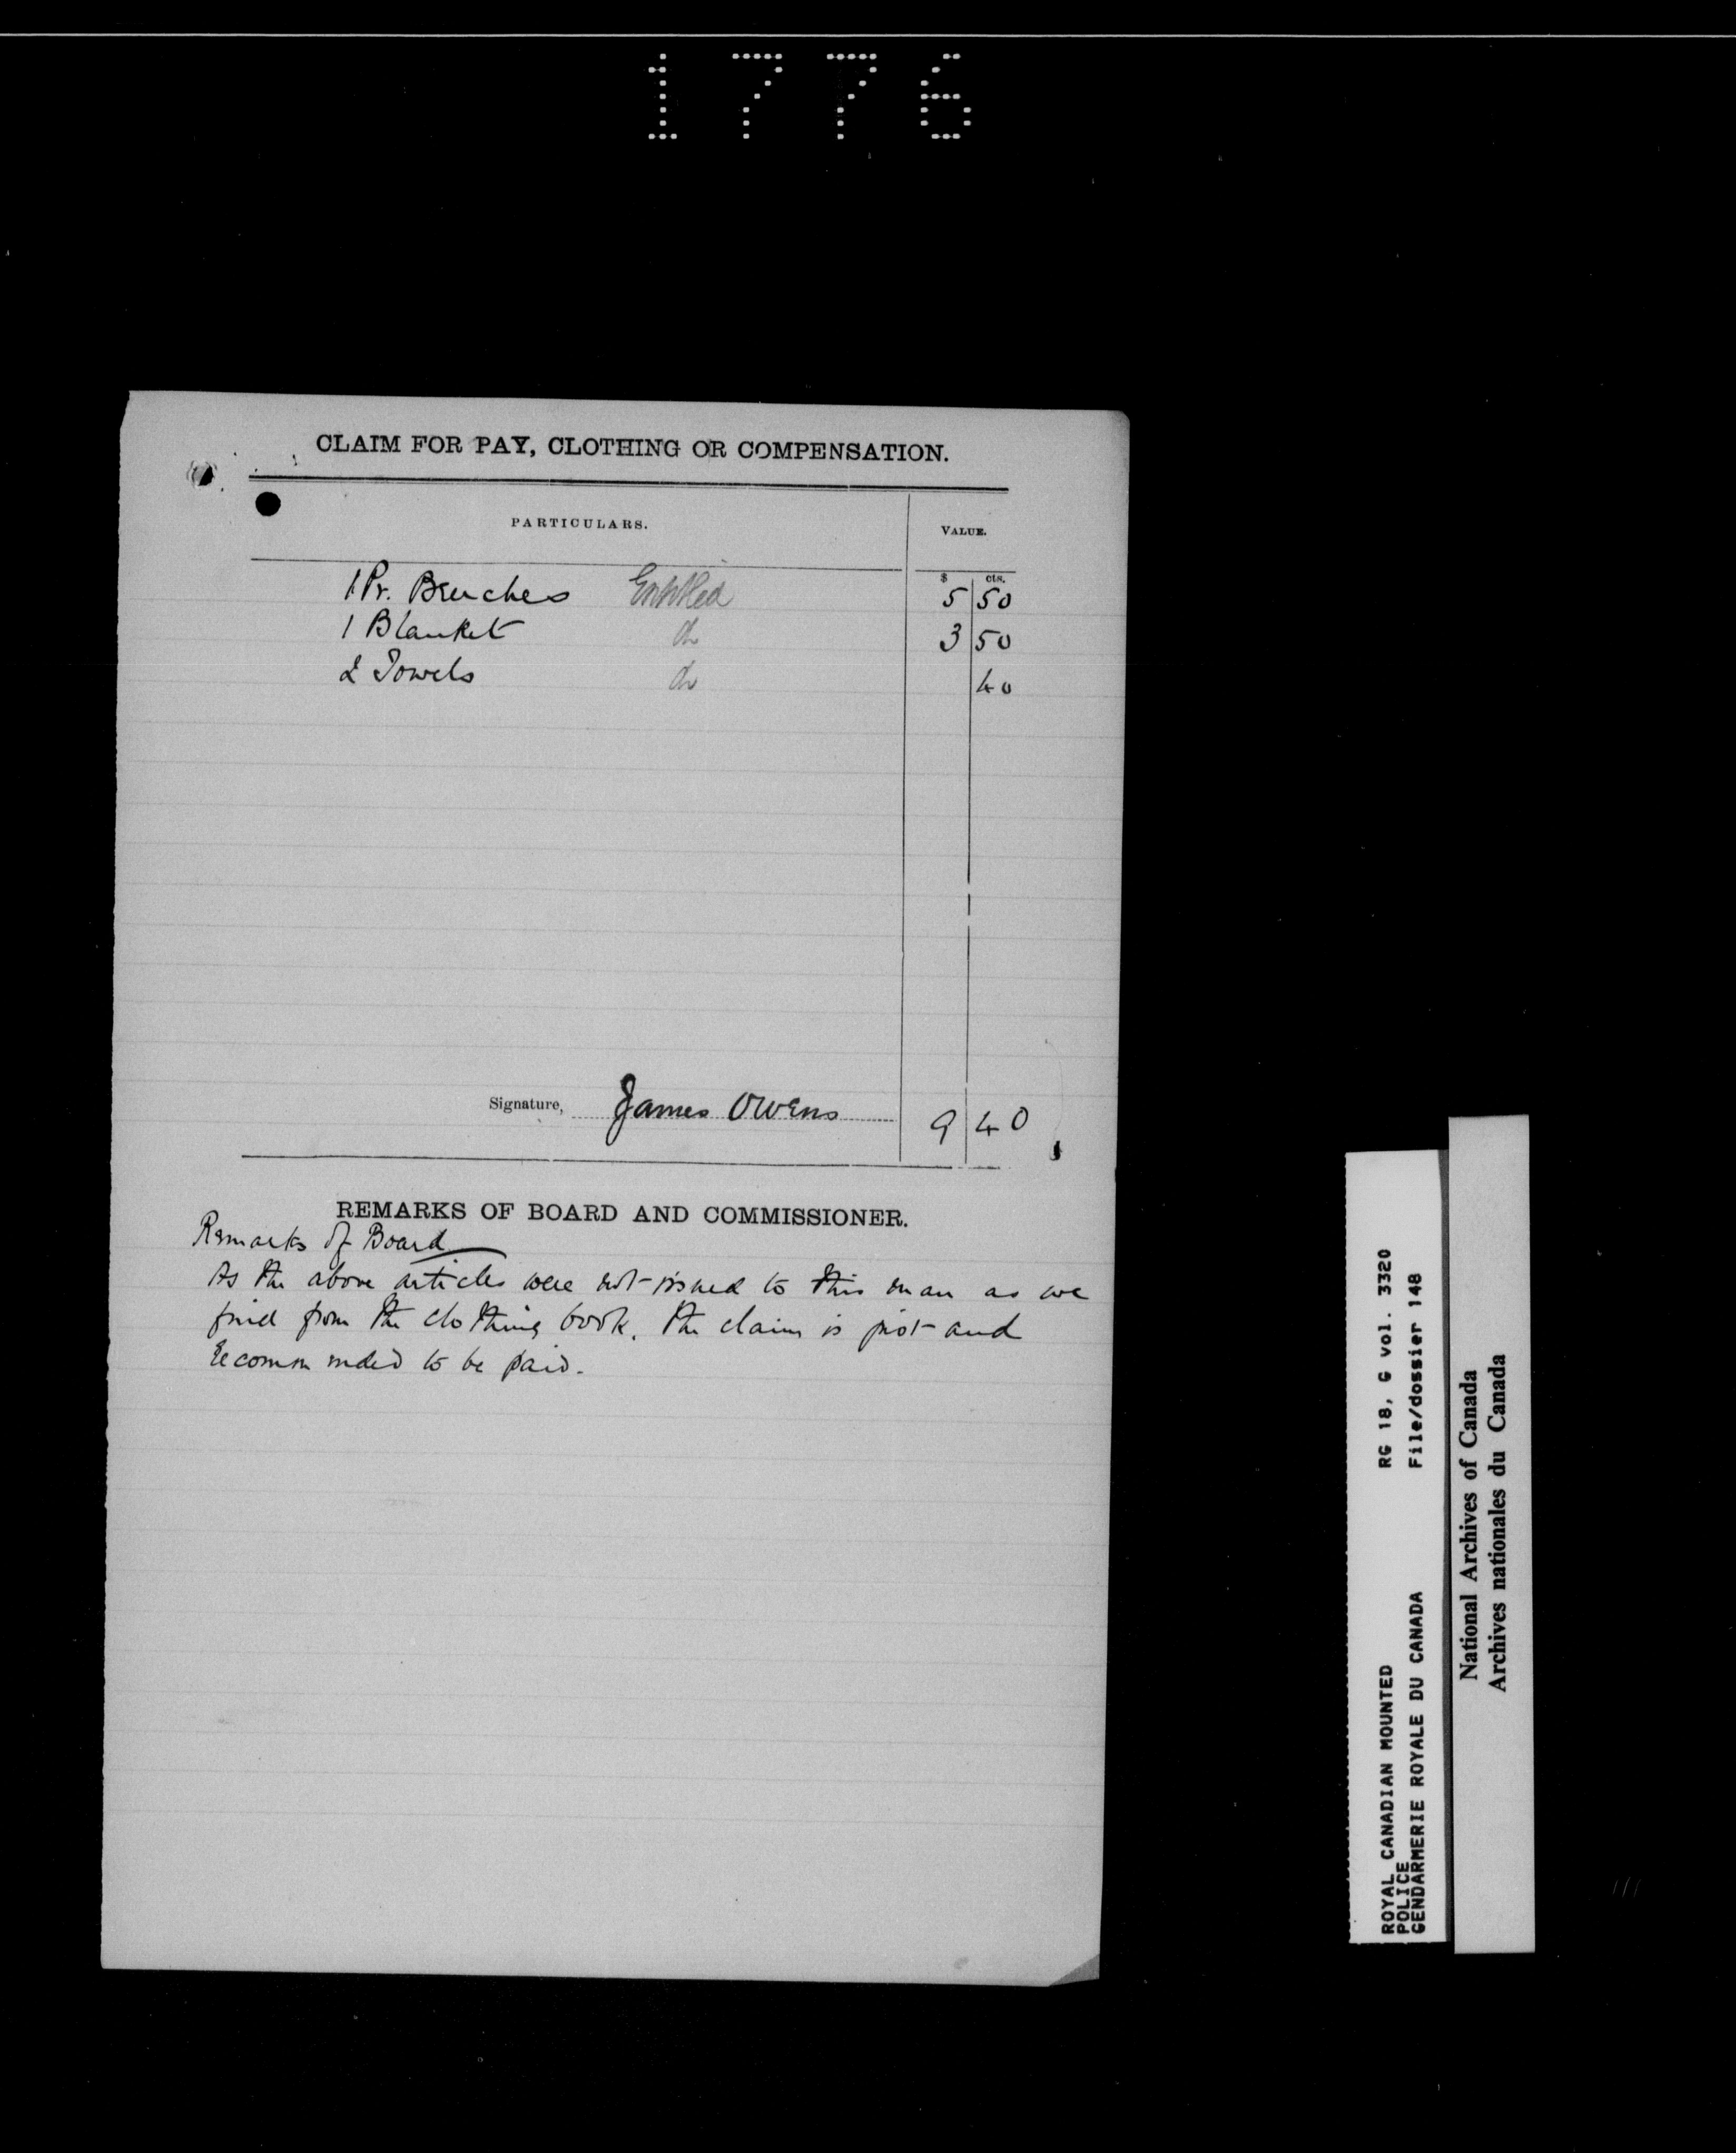 1776
CLAIM FOR PAY, CLOTHING OR COMPENSATION.
PARTICULARS.
VALUE.
$ cts.
1 Pr. Breeches Entitled 5 50
1 Blanket do 3 50
2 Towels do 40
Signature, James Owens 9 40
REMARKS OF BOARD AND COMMISSIONER.
Remarks of Board
As the above articles were not issued to this man as we
find from the clothing book. The claim is just and
recommended to be paid.
ROYAL CANADIAN MOUNTED RG 18, G vol. 3320
POLICE
GENDARMERIE ROYALE DU CANADA File/dossier 148
National Archives of Canada
Archives nationales du Canada